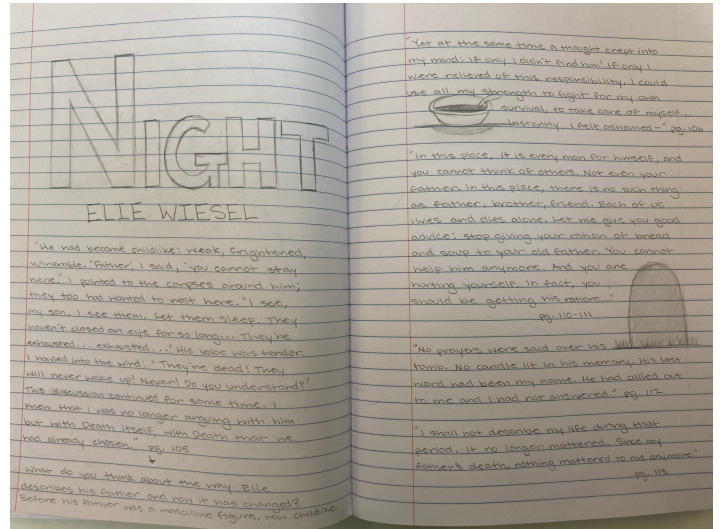 NIGHT
ELIE WIESEL
"He had become childlike: weak, frightened,
vulnerable. 'Father', I said, 'you cannot stay
here.' I pointed to the corpses around him;
they too had wanted to rest here. 'I see,
my son, I see them. Let them sleep. They
haven't closed an eye for so long... They're
exhausted... exhausted...' His voice was tender.
I howled into the wind: 'They're dead! They
will never wake up! Never! Do you understand?'
This discussion continued for some time. I
knew that I was no longer arguing with him
but with Death itself, with Death that he
had already chosen." pg. 105
What do you think about the way Elie
describes his father and how it has changed?
Before his father was a masculine figure, now childlike.
"Yet at the same time a thought crept into
my mind: If only I didn't find him! If only I
were relieved of this responsibility, I could
use all my strength to fight for my own
survival, to take care of myself...
Instantly, I felt ashamed-" pg. 106
"In this place, it is every man for himself, and
you cannot think of others. Not even your
father. In this place, there is no such thing
as father, brother, friend. Each of us
lives and dies alone. Let me give you good
advice: stop giving your ration of bread
and soup to your old father. You cannot
help him anymore. And you are
hurting yourself. In fact, you
should be getting his rations..."
pg. 110-111
"No prayers were said over his
tomb. No candle lit in his memory. His last
word had been my name. He had called out
to me and I had not answered." pg. 112
"I shall not describe my life during that
period. It no longer mattered. Since my
father's death, nothing mattered to me anymore."
pg. 113